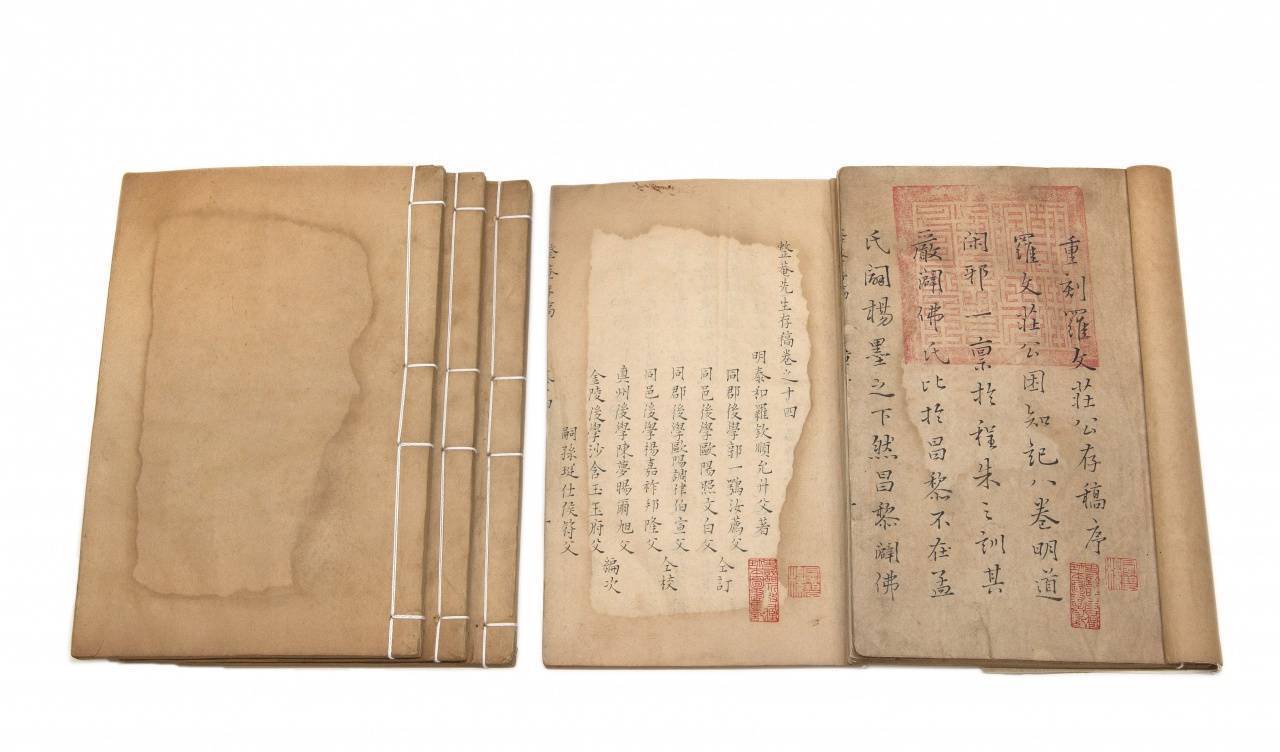 重刻羅文莊公存稿序
羅文莊公困知記八卷明道
閑邪一稟於程朱之訓其
嚴闢佛氏比於昌黎不在孟
氏闢楊墨之下然昌黎闢佛
整菴先生存稿卷之十四
明泰和羅欽順允升父著
同郡後學郭一鶚汝薦父
同邑後學歐陽照文白父
仝訂
同郡後學歐陽調律伯宣父
同邑後學楊嘉祚邦隆父
仝校
真州後學陳夢暘爾旭父
金陵後學沙含玉玉府父
編次
嗣孫珽仕侯符父